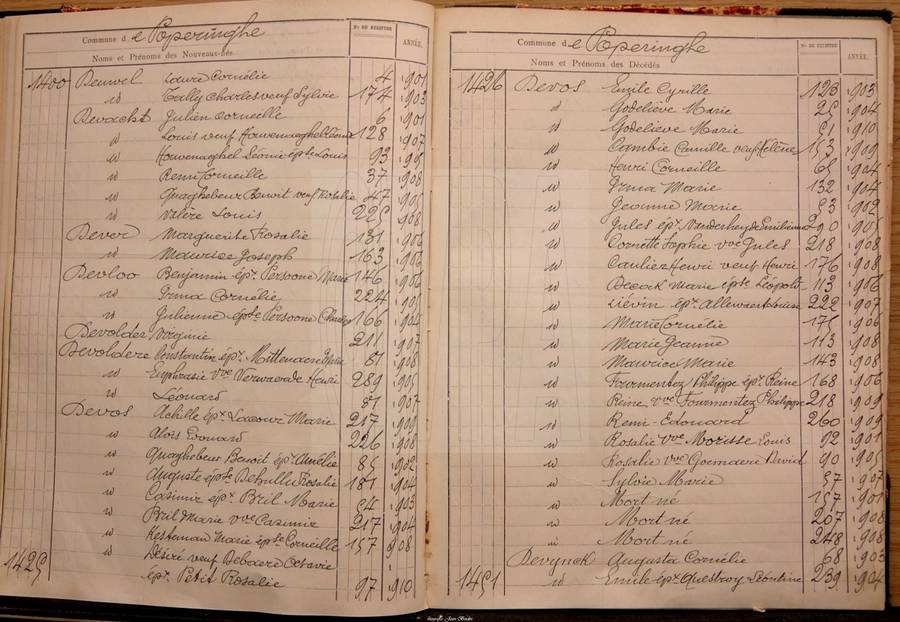 Commune de Poperinghe
Nos DU REGISTRE
ANNÉE.
Noms et Prénoms des Nouveaux-nés.
1400 Deuwel Laure Cornélie 4 1901
id Tally Charles veuf Sylvie 174 1903
Devacht Julien Corneille 6 1901
id Louis veuf Houwenaghel Léonie 128 1907
id Houwenaghel Léonie épse Louis 93 1905
id Remi Corneille 37 1908
id Quaghebeur Benoit veuf Rosalie 47 1905
id Valère Louis 225 1908
Dever Marguerite Rosalie 131 1906
id Maurice Joseph 163 1906
Devloo Benjamin épx Persoone Marie 146 1906
id Irma Cornélie 224 1905
id Julienne épse Persoone Charles 166 1904
Devolder Virginie 211 1907
Devoldere Constantin épx Mittenaere 81 1908
id Euphrasie vve Verwaerde Henri 289 1905
id Léonard 81 1907
Devos Achille épx Lacour Marie 217 1909
id Aloïs Edouard 226 1908
id Quaghebeur Benoit épx Amélie 85 1902
id Auguste épse Rosalie 181 1904
id Casimir épx Bril Marie 54 1903
id Bril Marie vve Casimir 217 1904
id Kesteman Marie épse Corneille 157 1908
id Désiré veuf Debaere Octavie
1425 épx Petit Rosalie 97 1910
Commune de Poperinghe
Nos DU REGISTRE
ANNÉE.
Noms et Prénoms des Décédés
1426 Devos Emile Cyrille 123 1903
id Godelieve Marie 25 1904
id Godelieve Marie 51 1910
id Cambie Camille veuf Hélène 153 1909
id Henri Corneille 65 1904
id Irma Marie 132 1904
id Jeanne Marie 53 1902
id Jules épx Vanderheyde Emilienne 290 1905
id Cornette Sophie vve Jules 218 1908
id Cauliez Henri veuf Henri 176 1908
id Decock Marie épse Léopold 113 1906
id Liévin épx Allewaert Louise 222 1907
id Marie Cornélie 175 1906
id Marie Jeanne 113 1908
id Maurice Marie 143 1908
id Fourmentez Philippe épx Reine 168 1906
id Reine vve Fourmentez Philippe 218 1909
id Remi Edouard 260 1909
id Rosalie vve Morisse Louis 92 1901
id Rosalie vve Goemaere David 90 1905
id Sylvie Marie 57 1907
id Mort né 157 1901
id Mort né 207 1908
id Mort né 248 1908
Devynck Augusta Cornélie 68 1903
1451 id Emile épx Questroy Léontine 239 1904